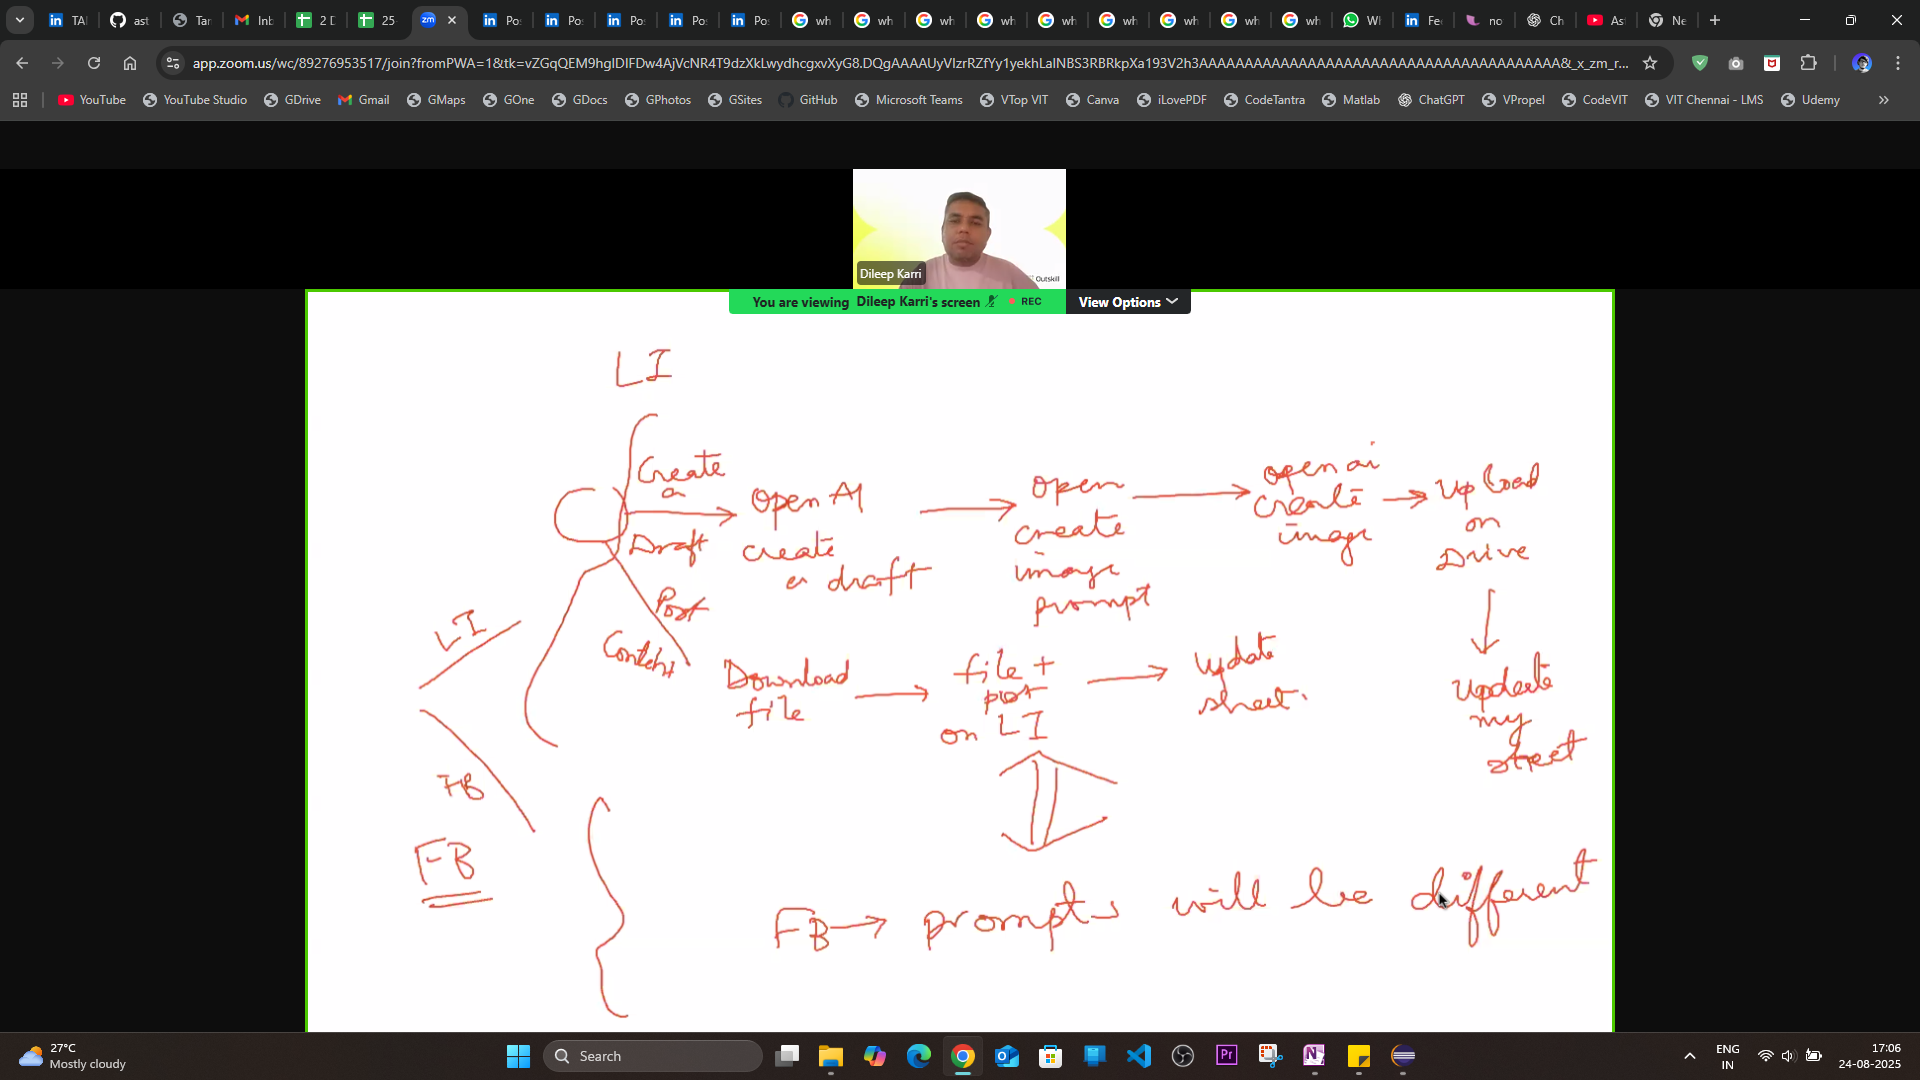 TA
ast
Tar
Inb
2 D
25-
zm
Po:
Po:
Po:
Po:
Po:
wh
wh
wh
wh
wh
wh
wh
wh
wh
Wl
Fe
no
Ch
As
Ne
app.zoom.us/wc/89276953517/join?fromPWA=1&tk=vZGqQEM9hgIDIFDw4AjVcNR4T9dzXkLwydhcgxvXyG8.DQgAAAAUyVIzrRZfYy1yekhLaINBS3RBRkpXa193V2h3AAAAAAAAAAAAAAAAAAAAAAAAAAAAAAAAAAAAAAAA&_x_zm_r...
YouTube
YouTube Studio
GDrive
Gmail
GMaps
GOne
GDocs
GPhotos
GSites
GitHub
Microsoft Teams
VTop VIT
Canva
iLovePDF
CodeTantra
Matlab
ChatGPT
VPropel
CodeVIT
VIT Chennai - LMS
Udemy
Dileep Karri
Outskill
You are viewing Dileep Karri's screen
REC
View Options
LI
Create
a
Draft
Open AI
create
a draft
open
create
image
prompt
open ai
create
image
upload
on
Drive
Post
Content
Download
file
file +
post
on LI
update
sheet.
update
my
sheet
LI
FB
FB
FB → prompts will be different
27°C
Mostly cloudy
Search
Pr
ENG
IN
17:06
24-08-2025